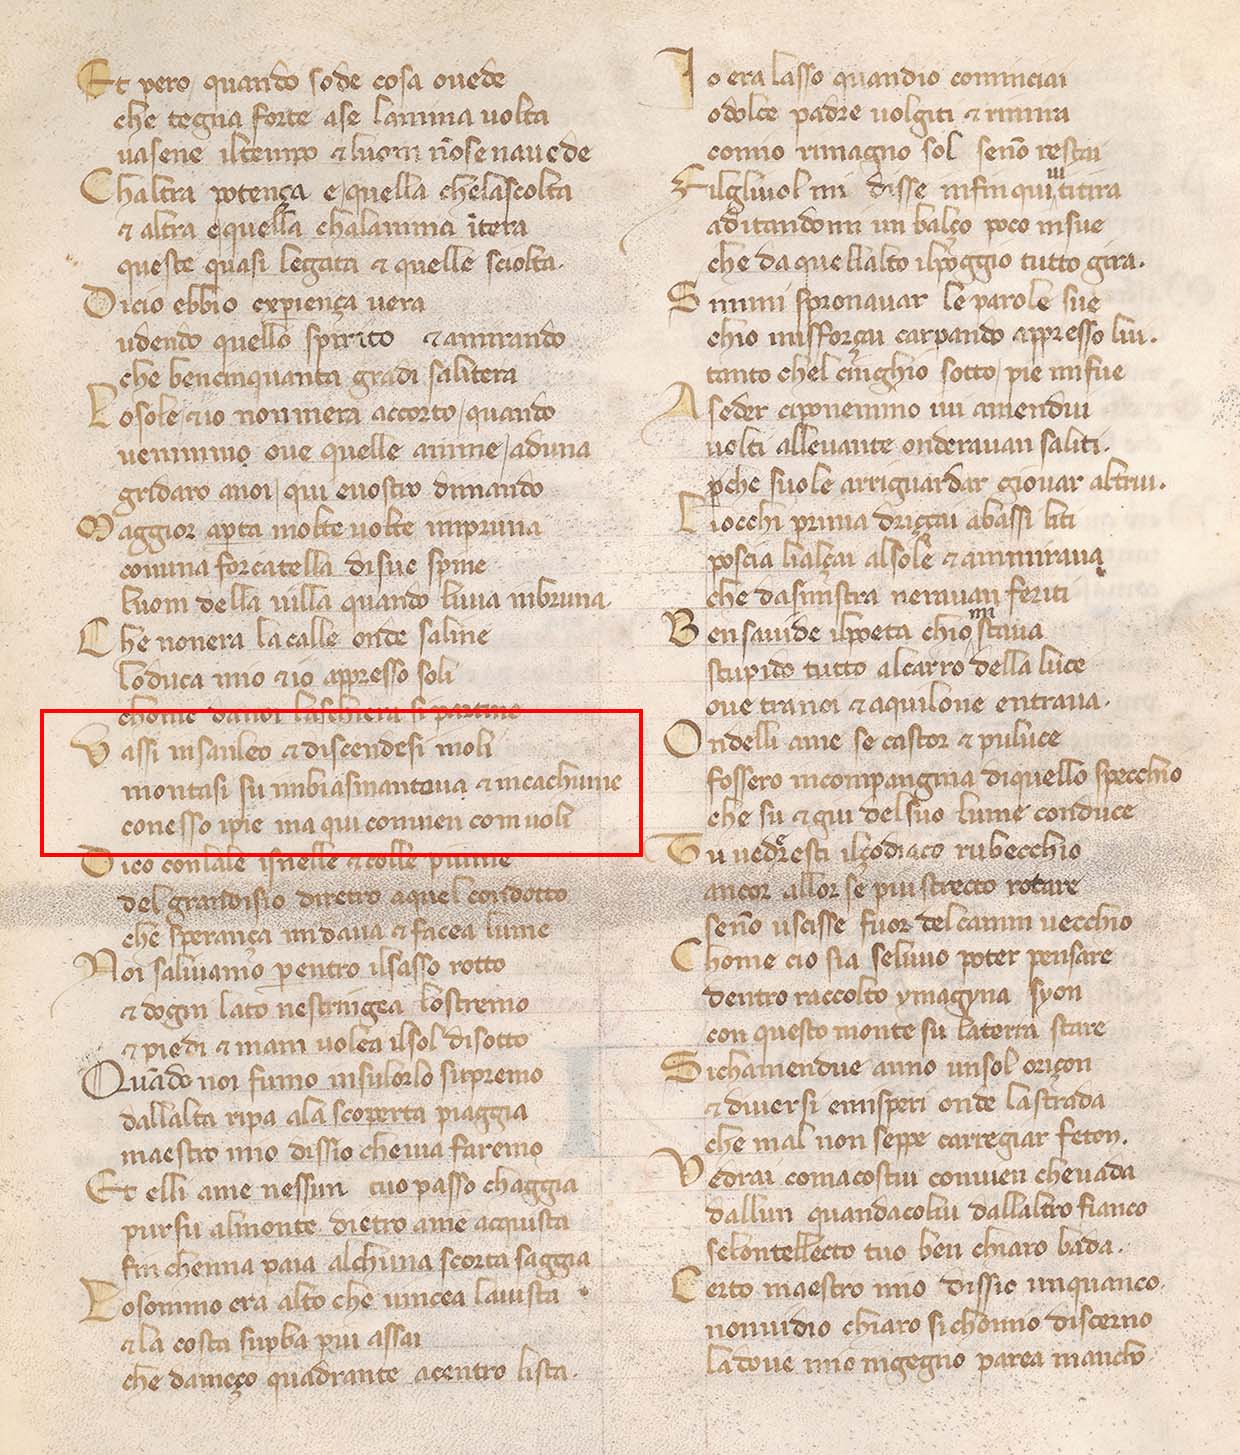 Et pero quando sode cosa ovede
che tegna forte ase lanima volta
vasene iltempo & luom nōsenavede
Chaltra potença e quella chelascolta
& altra equella chalanima ītera
queste quasi legata & quelle sciolta.
Dicio ebbio experiença vera
udendo quello spirito & amirando
che bencinquanta gradi salitera
Lo sole & io nonmera accorto quando
venimmo ove quelle anime aduna
gridaro anoi qui evostro dimando
Maggior apta molte volte impruna
comuna forcatella disue spine
luom della villa quando luva inbruna.
Che nonera lacalle onde saline
loduca mio & io appresso soli
chome danoi laschiera si partine
Vassi insanleo & discendesi inoli
montasi su inbiasmantova & incachume
conesso ipie ma qui convien comvoli
Dico conlale isnelle & colle piume
del grandisio diretro aquel condotto
che sperança midava & facea lume
Noi salivamo pentro ilsasso rotto
& dogni lato nestringea lostremo
& piedi & mani volea ilsol disotto
Quādo noi fumo insulorlo supremo
dallalta ripa ala scoperta piaggia
maestro mio dissio chevia faremo
Et elli ame nessun tuo passo chaggia
pursu almonte dietro ame acquista
fin chenna paia alchuna scorta saggia
Losommo era alto che vincea lavista
& la costa supba piu assai
che dameço quadrante acentro lista.
Io era lasso quandio cominciai
odolce padre volgiti & rimira
comio rimagno sol senō restai
Filgliuol mi disse infin qui ti tira
aditandomi un balço poco insue
che daquellalto ilpoggio tutto gira.
Simmi spronavar le parole sue
chio misforçai carpando appresso lui.
tanto chel cinghio sotto pie mifue
Aseder ciponemmo ivi amendui
volti allevante onderavan saliti.
pche suole arriguardar giovar altrui.
Liocchi prima driççai abassi liti
poscia lialçai alsole & ammirava
che dasinistra neravan feriti
Ben savide ilpoeta chio stava
stupido tutto alcarro della luce
ove tranoi & aquilone entrava.
Ondelli ame se castor & puluce
fossero incompangnia diquello specchio
che su & giu delsuo lume conduce
Tu vedresti ilçodiaco rubecchio
ancor allorse piu strecto rotare
senō uscisse fuor delcamin vecchio
Chome cio sia selvuo poter pensare
dentro raccolto ymagyna syon
con questo monte su laterra stare
Sichamendue anno unsol oriçon
& diversi emisperi onde lastrada
che mal non seppe carregiar feton.
Vedrai comacostui convien chevada
dallun quandacolui dallaltro fianco
selontellecto tuo ben chiaro bada.
Certo maestro mio dissio unquanco.
nonvidio chiaro sichomio discerno
ladove mio ingegno parea mancho